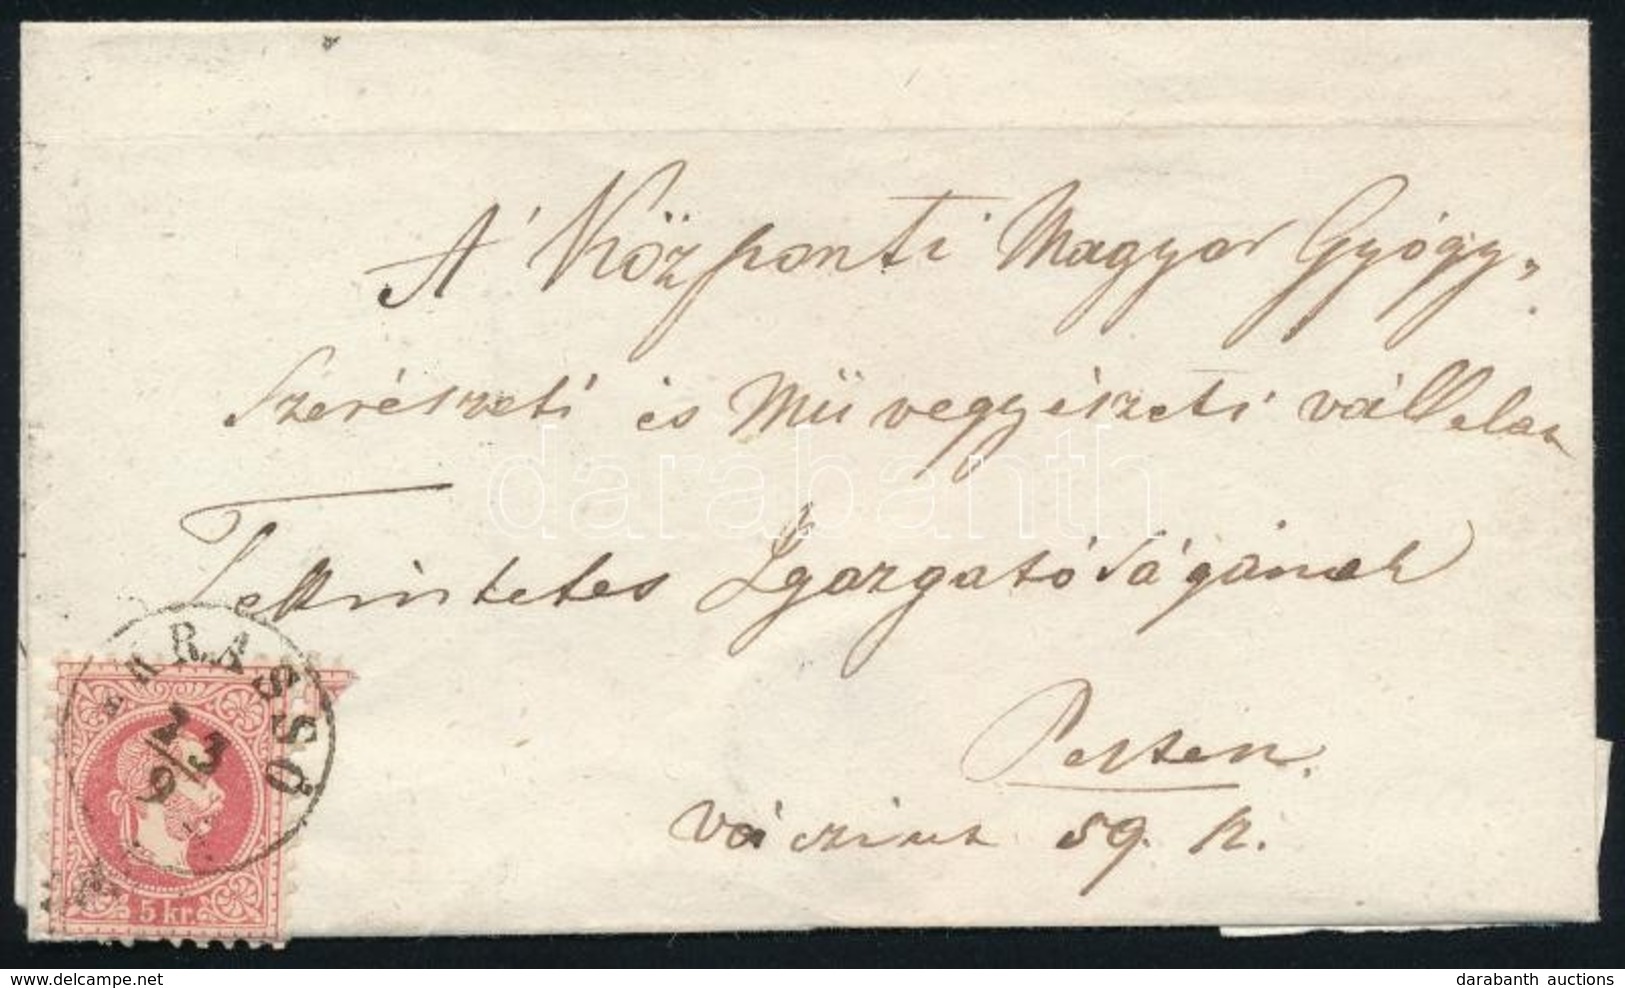 A' Központi Magyar Gyógy„
Szerészeti és Művegyészeti vállalat
Tekintetes Igazgatóságának
Pesten.
váczi ut 59. k.
2/3
9
5 kr.
darabanth
delcampe.net
darabanth auctions